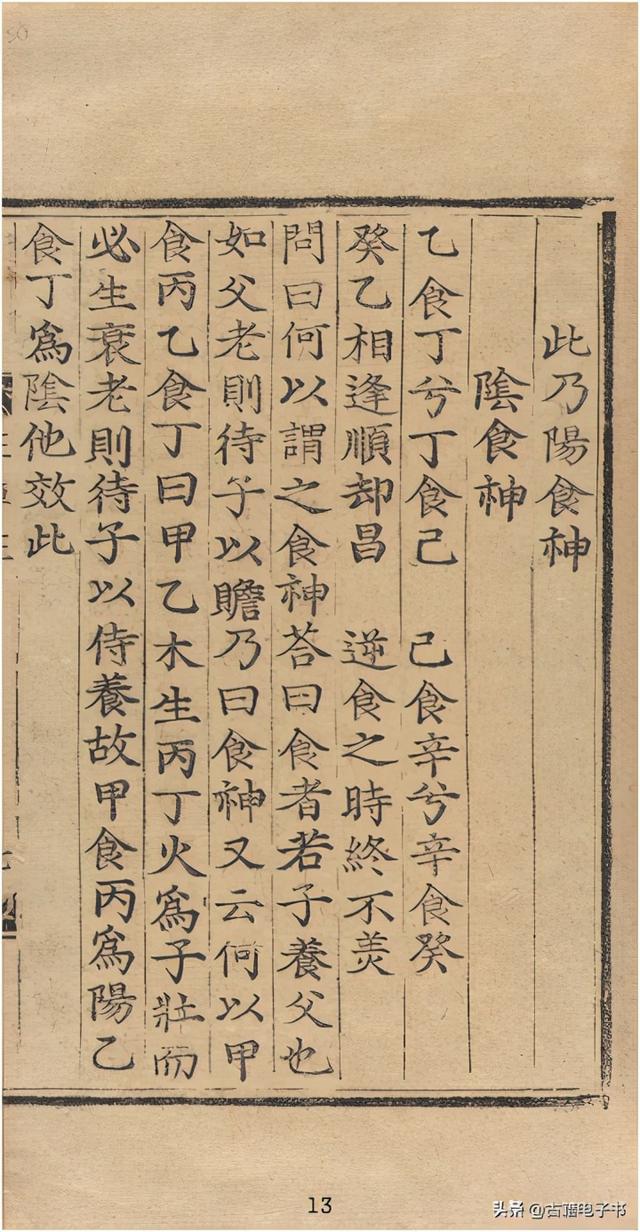 此乃陽食神
陰食神
乙食丁兮丁食己 己食辛兮辛食癸
癸乙相逢順却昌 逆食之時終不羙
問曰何以謂之食神荅曰食者若子養父也
如父老則待子以贍乃曰食神又云何以甲
食丙乙食丁曰甲乙木生丙丁火爲子壯而
必生衰老則待子以侍養故甲食丙爲陽乙
食丁爲陰他效此
13
头条@古籍电子书